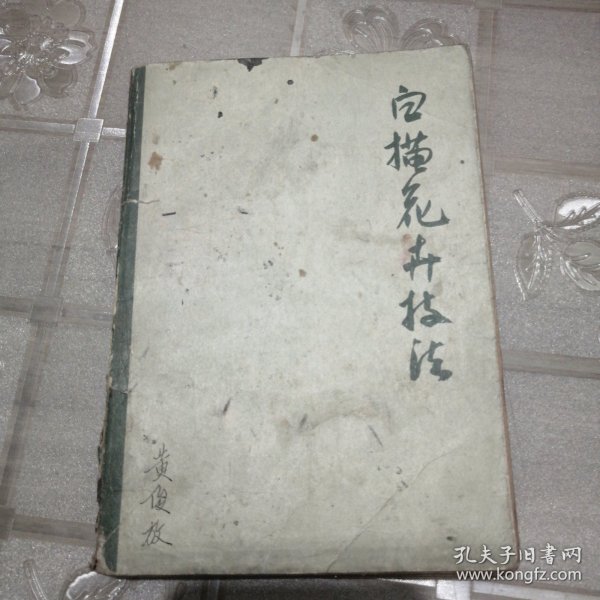 白描花卉技法
黄俊敏
孔夫子旧书网
www.kongfz.com